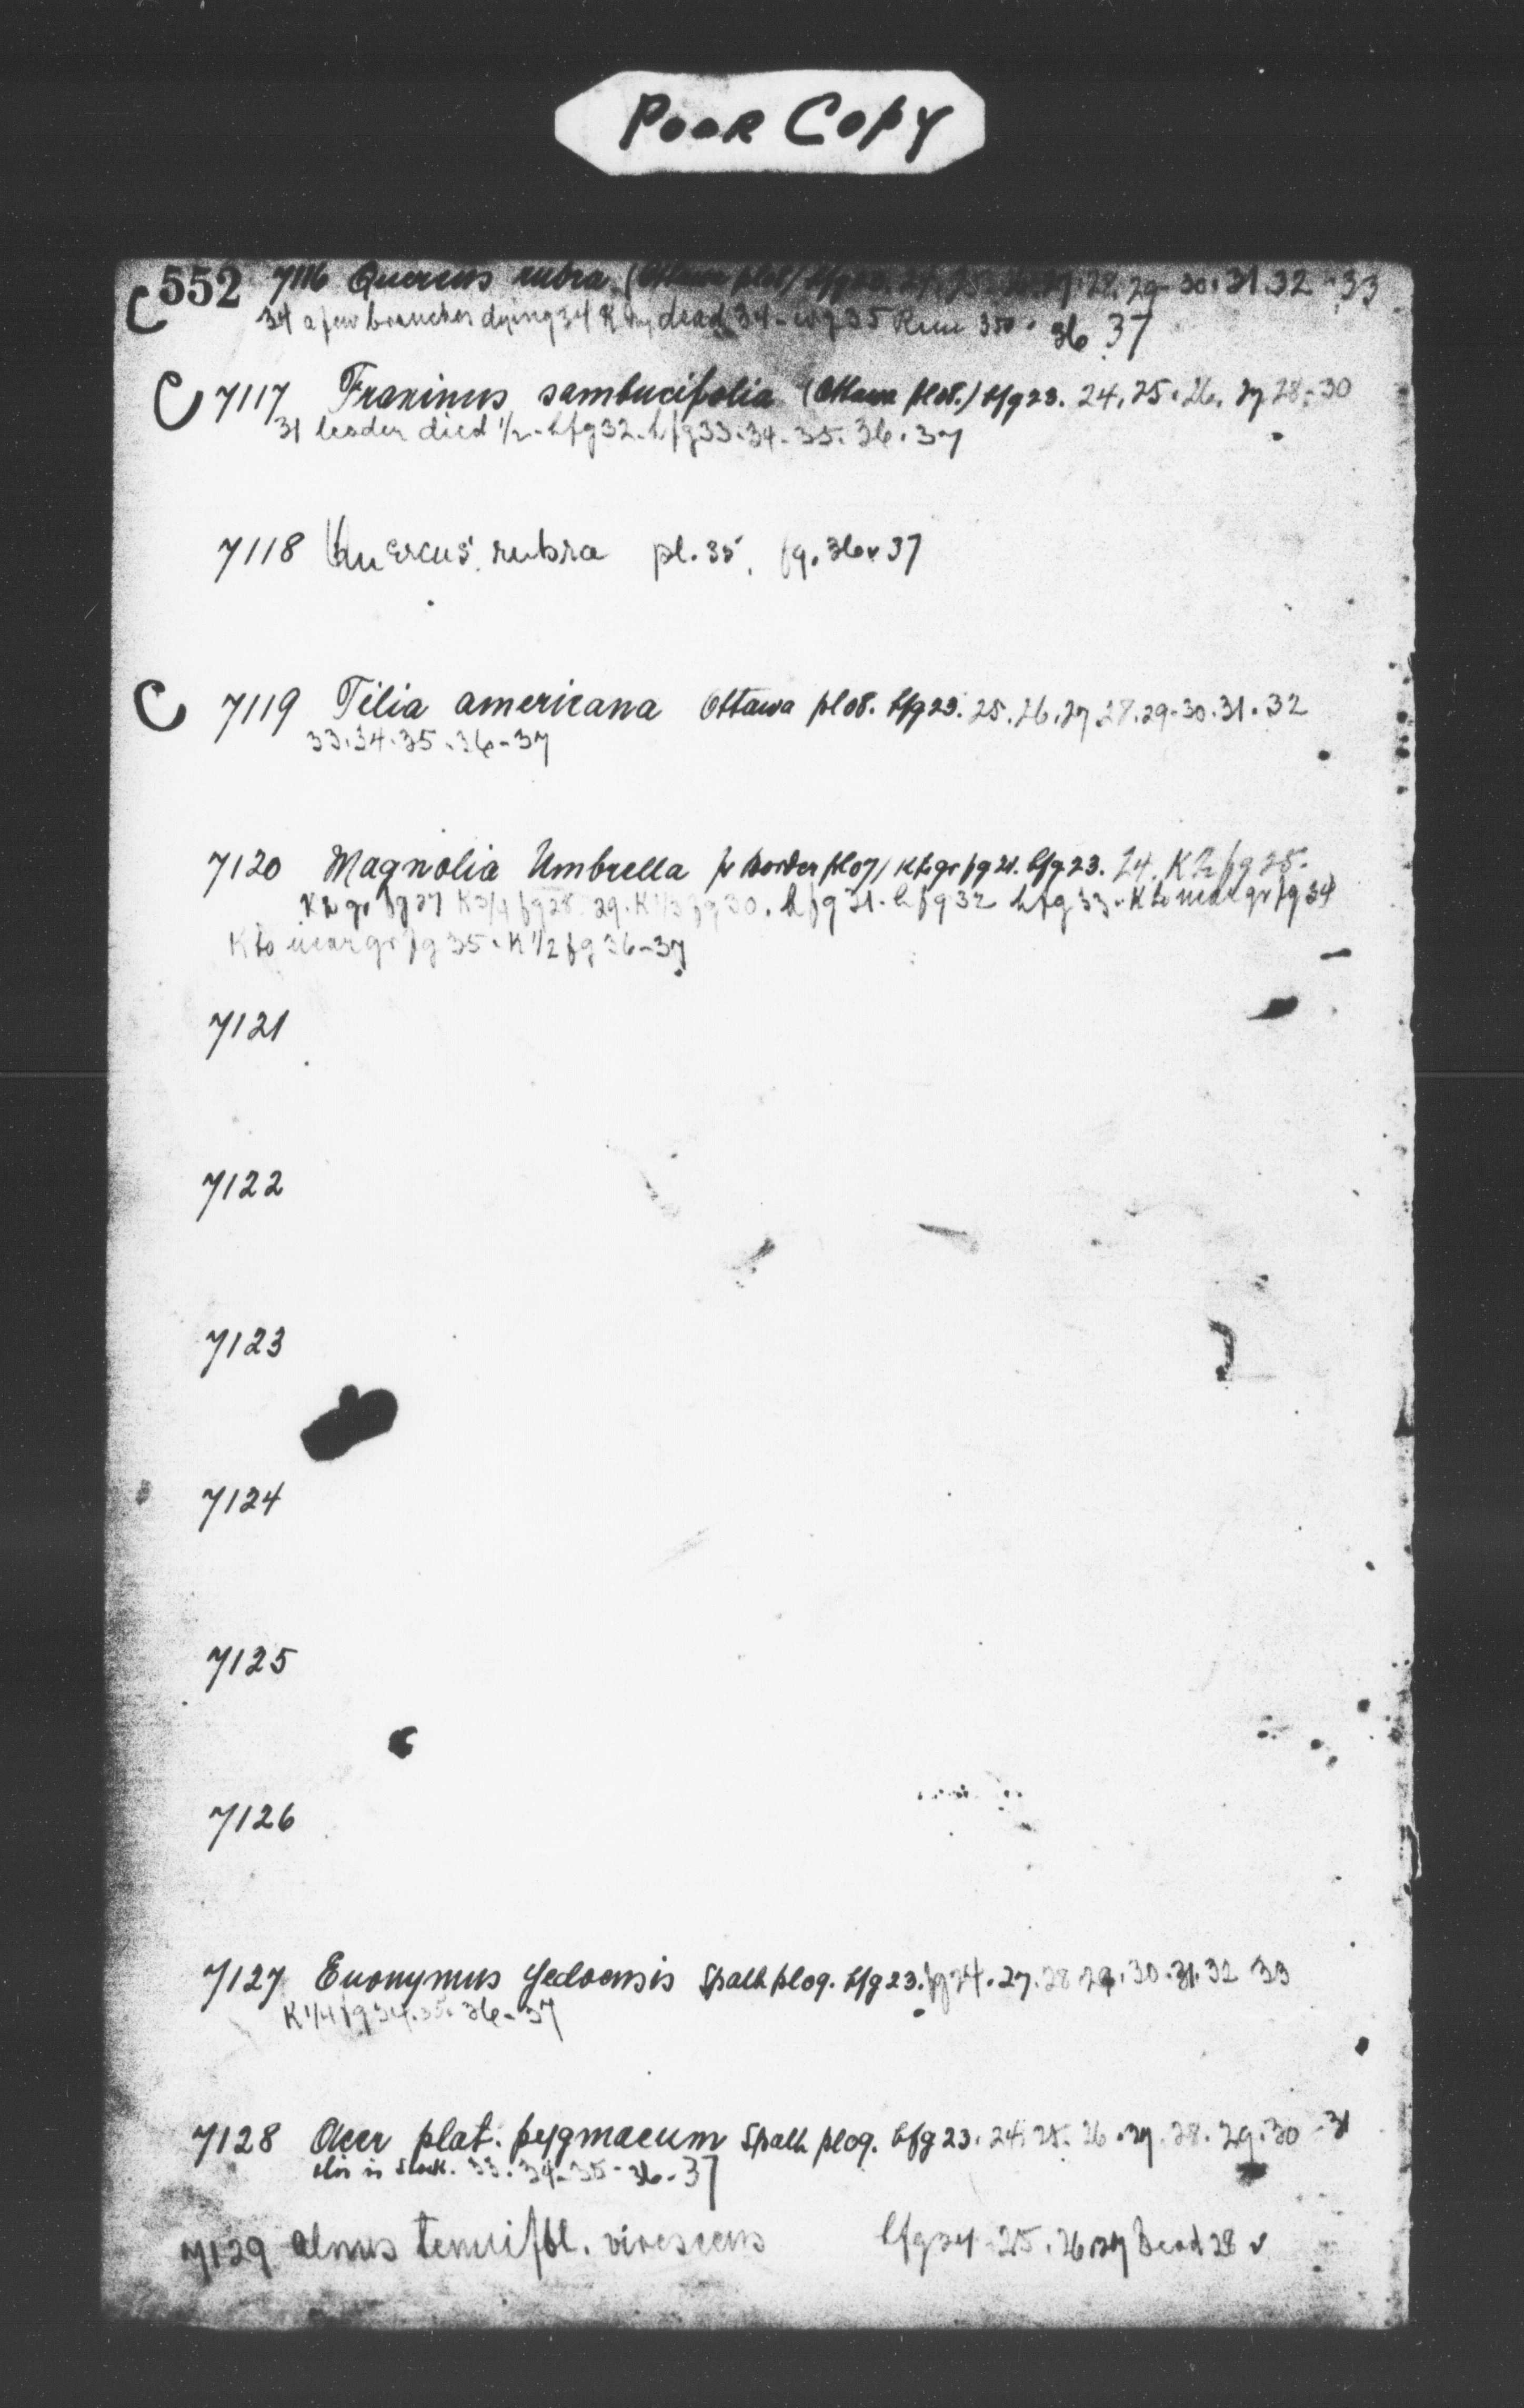 Poor Copy
552 7116 Quercus rubra (Ottawa pl08) hfg23. 24. 25. 26. 27. 28. 29 - 30. 31. 32 - 33
C 34 a few branches dying 34 dead 34 - 35 36 37
C 7117 Fraxinus sambucifolia (Ottawa pl08.) hfg23. 24. 25. 26. 27 28 - 30
31 leader died 1/2 - hfg32 - hfg33. 34 - 35. 36. 37
7118 Quercus rubra pl. 35, fg. 36 37
C 7119 Tilia americana Ottawa pl08. hfg23. 25. 26. 27 28. 29 - 30. 31. 32
33. 34. 35. 36 - 37
7120 Magnolia Umbrella pl07 hfg23. 24. K 1/2 fg 25.
fg 27 K 3/4 fg 28. 29. K 1/3 fg 30. hfg 31 - hfg 32 hfg 33 - K to near gr fg 34
K to near gr fg 35. K 1/2 fg 36 - 37
7121
7122
7123
7124
7125
7126
7127 Euonymus yedoensis Spath pl09. hfg23. fg24. 27. 28 29. 30. 31. 32 33
K 1/4 fg 34. 35. 36 - 37
7128 Acer plat. pygmaeum Spath pl09. hfg23. 24. 25. 26. 27. 28. 29. 30 - 31
this is stock. 33. 34 - 35 - 36 - 37
7129 Alnus tenuifol. virescens hfg24 - 25. 26. 27 Dead 28